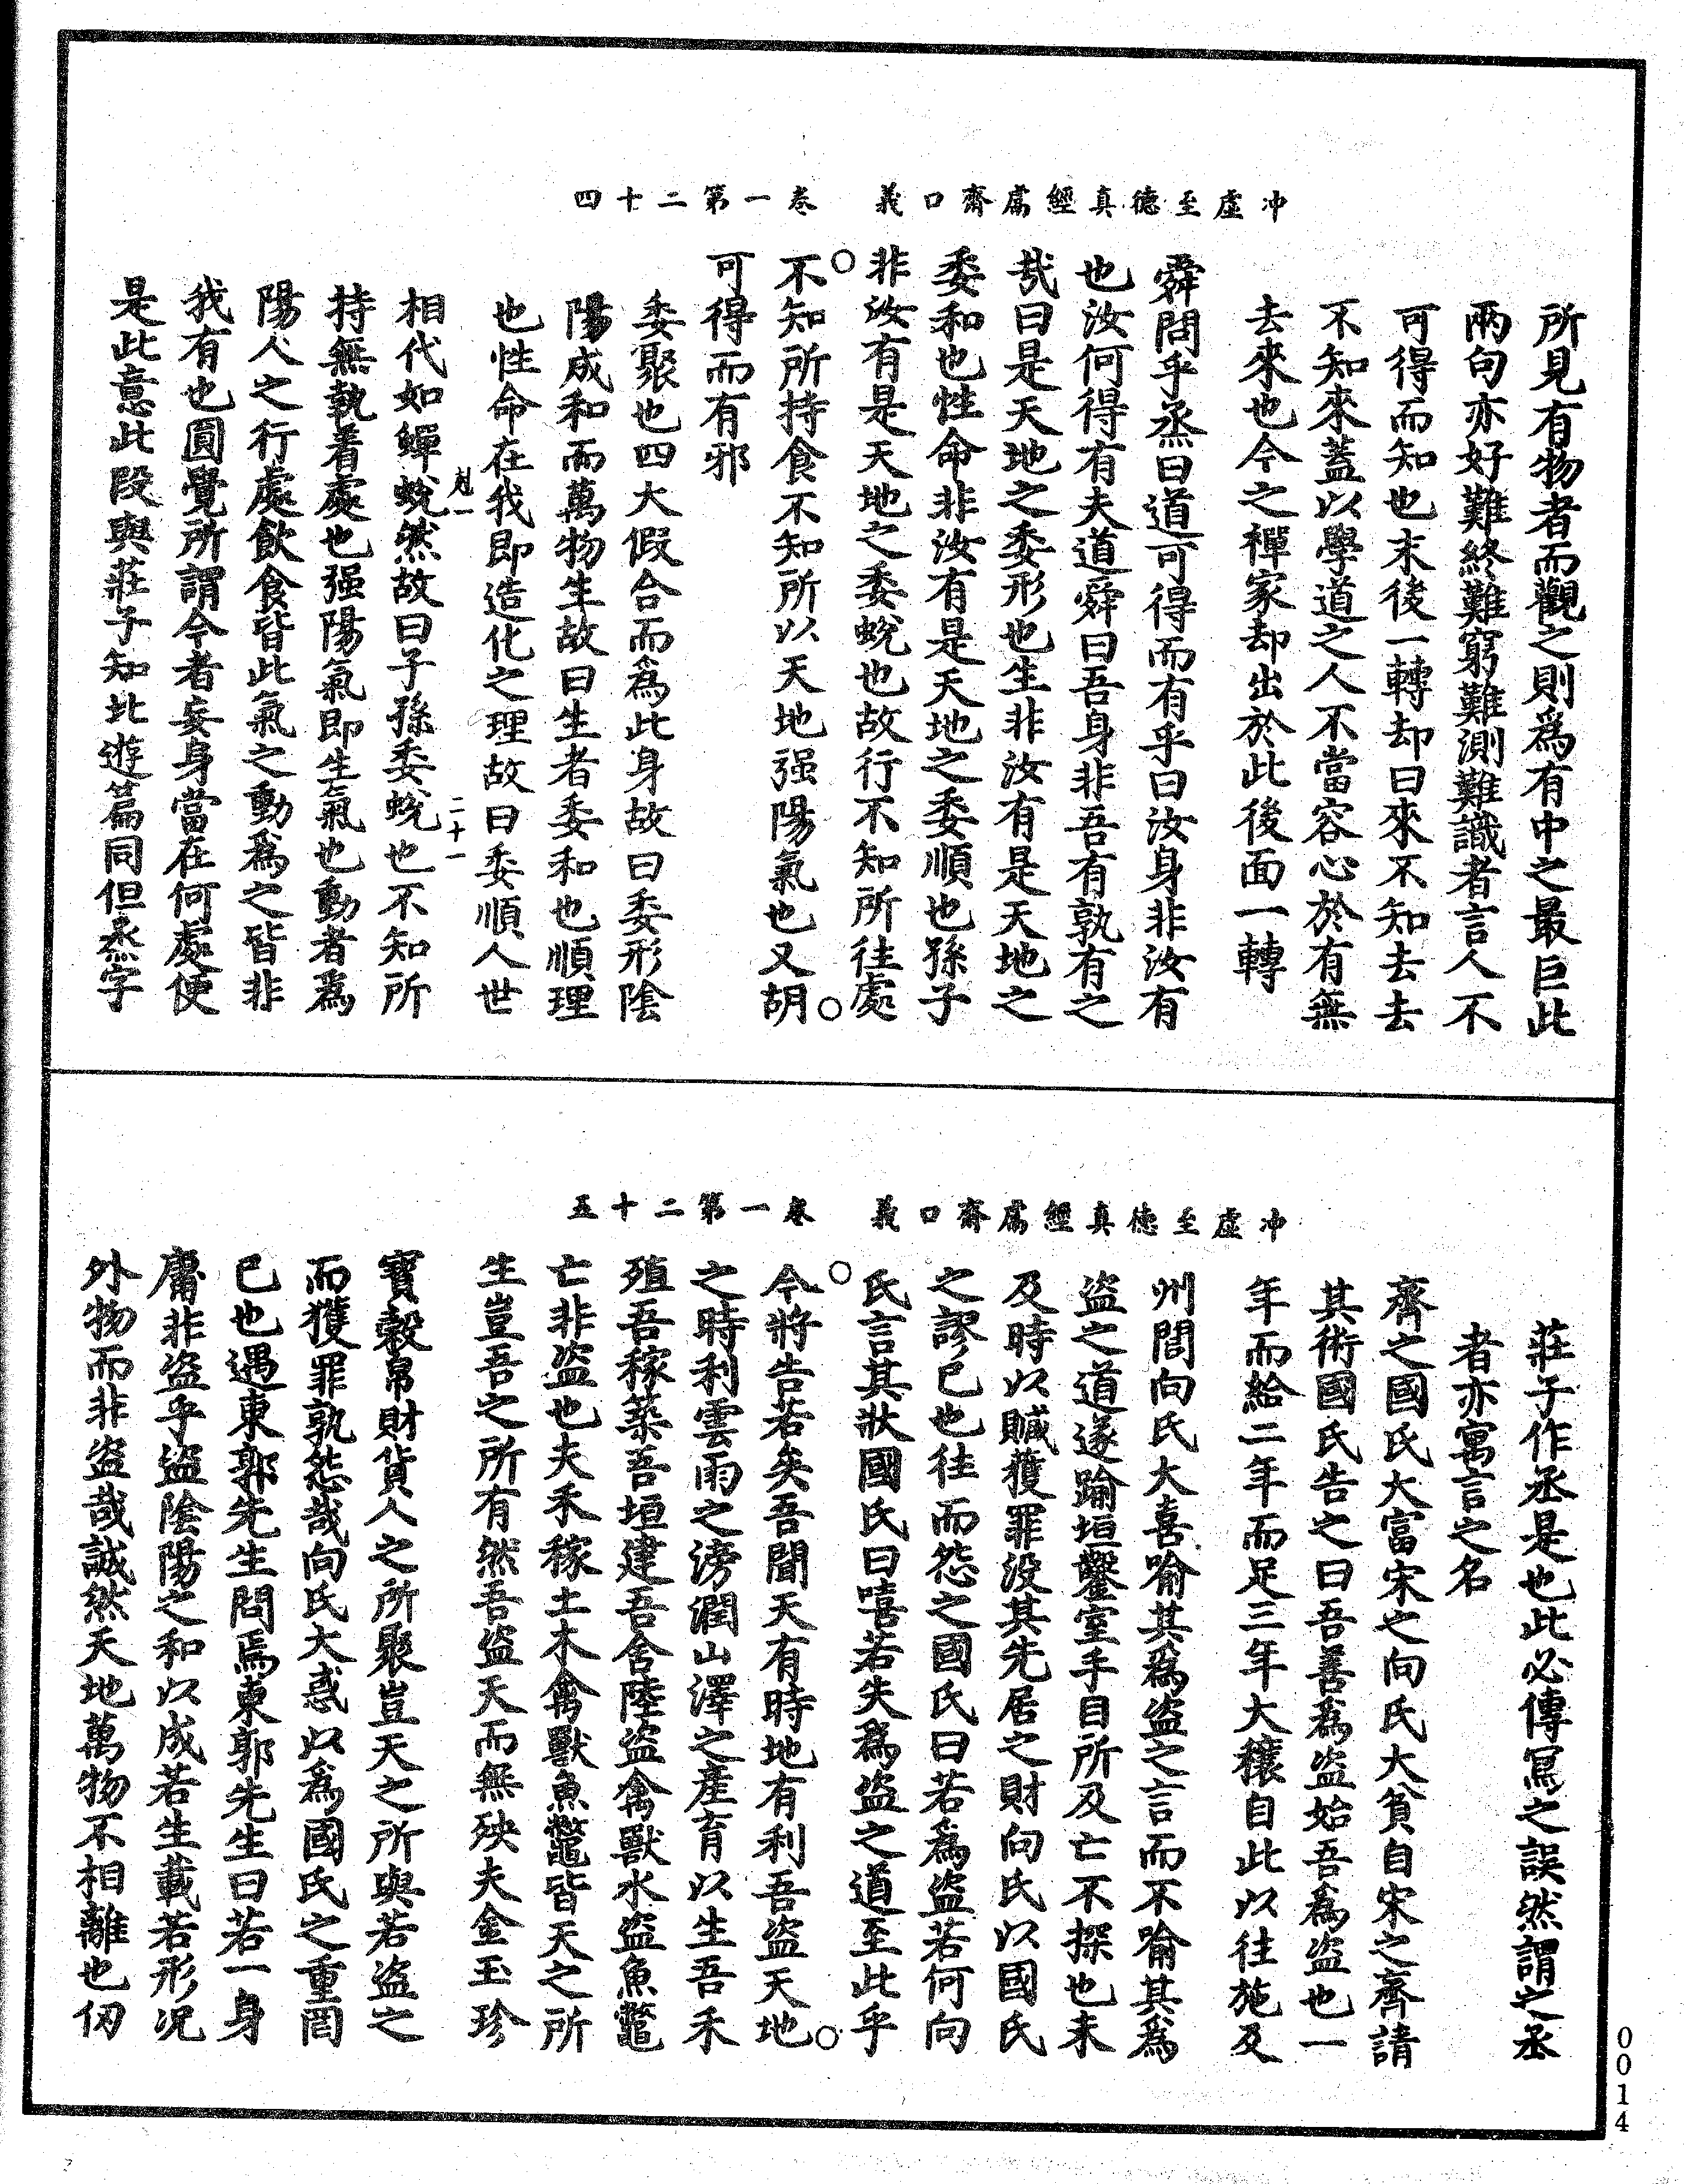 冲虛至德真經鬳齋口義　卷一第二十四
所見有物者而觀之則為有中之最巨此
兩句亦好難終難窮難測難識者言人不
可得而知也末後一轉却曰來不知去去
不知來蓋以學道之人不當容心於有無
去來也今之禪家却出於此後面一轉
舜問乎烝曰道可得而有乎曰汝身非汝有
也汝何得有夫道舜曰吾身非吾有孰有之
哉曰是天地之委形也生非汝有是天地之
委和也性命非汝有是天地之委順也孫子
非汝有是天地之委蛻也故行不知所往處
不知所持食不知所以天地强陽氣也又胡
可得而有邪
委聚也四大假合而為此身故曰委形陰
陽成和而萬物生故曰生者委和也順理
也性命在我即造化之理故曰委順人世
二十一
相代如蟬蛻然故曰子孫委蛻也不知所
持無執着處也强陽氣即生氣也動者為
陽人之行處飲食皆此氣之動為之皆非
我有也圓覺所謂今者妄身當在何處便
是此意此段與莊子知北遊篇同但烝字
冲虛至德真經鬳齋口義　卷一第二十五
莊子作丞是也此必傳寫之誤然謂之丞
者亦寓言之名
齊之國氏大富宋之向氏大貧自宋之齊請
其術國氏告之曰吾善為盜始吾為盜也一
年而給二年而足三年大穰自此以往施及
州閭向氏大喜喻其為盜之言而不喻其為
盜之道遂踰垣鑿室手目所及亡不探也未
及時以贓獲罪没其先居之財向氏以國氏
之謬己也往而怨之國氏曰若為盜若何向
氏言其狀國氏曰嘻若失為盜之道至此乎
今將告若矣吾聞天有時地有利吾盜天地
之時利雲雨之滂潤山澤之產育以生吾禾
殖吾稼築吾垣建吾舍陸盜禽獸水盜魚鼈
亡非盜也夫禾稼土木禽獸魚鼈皆天之所
生豈吾之所有然吾盜天而無殃夫金玉珍
寶穀帛財貨人之所聚豈天之所與若盜之
而獲罪孰怨哉向氏大惑以為國氏之重罔
已也遇東郭先生問焉東郭先生曰若一身
庸非盜乎盜陰陽之和以成若生載若形况
外物而非盜哉誠然天地萬物不相離也仞
0014